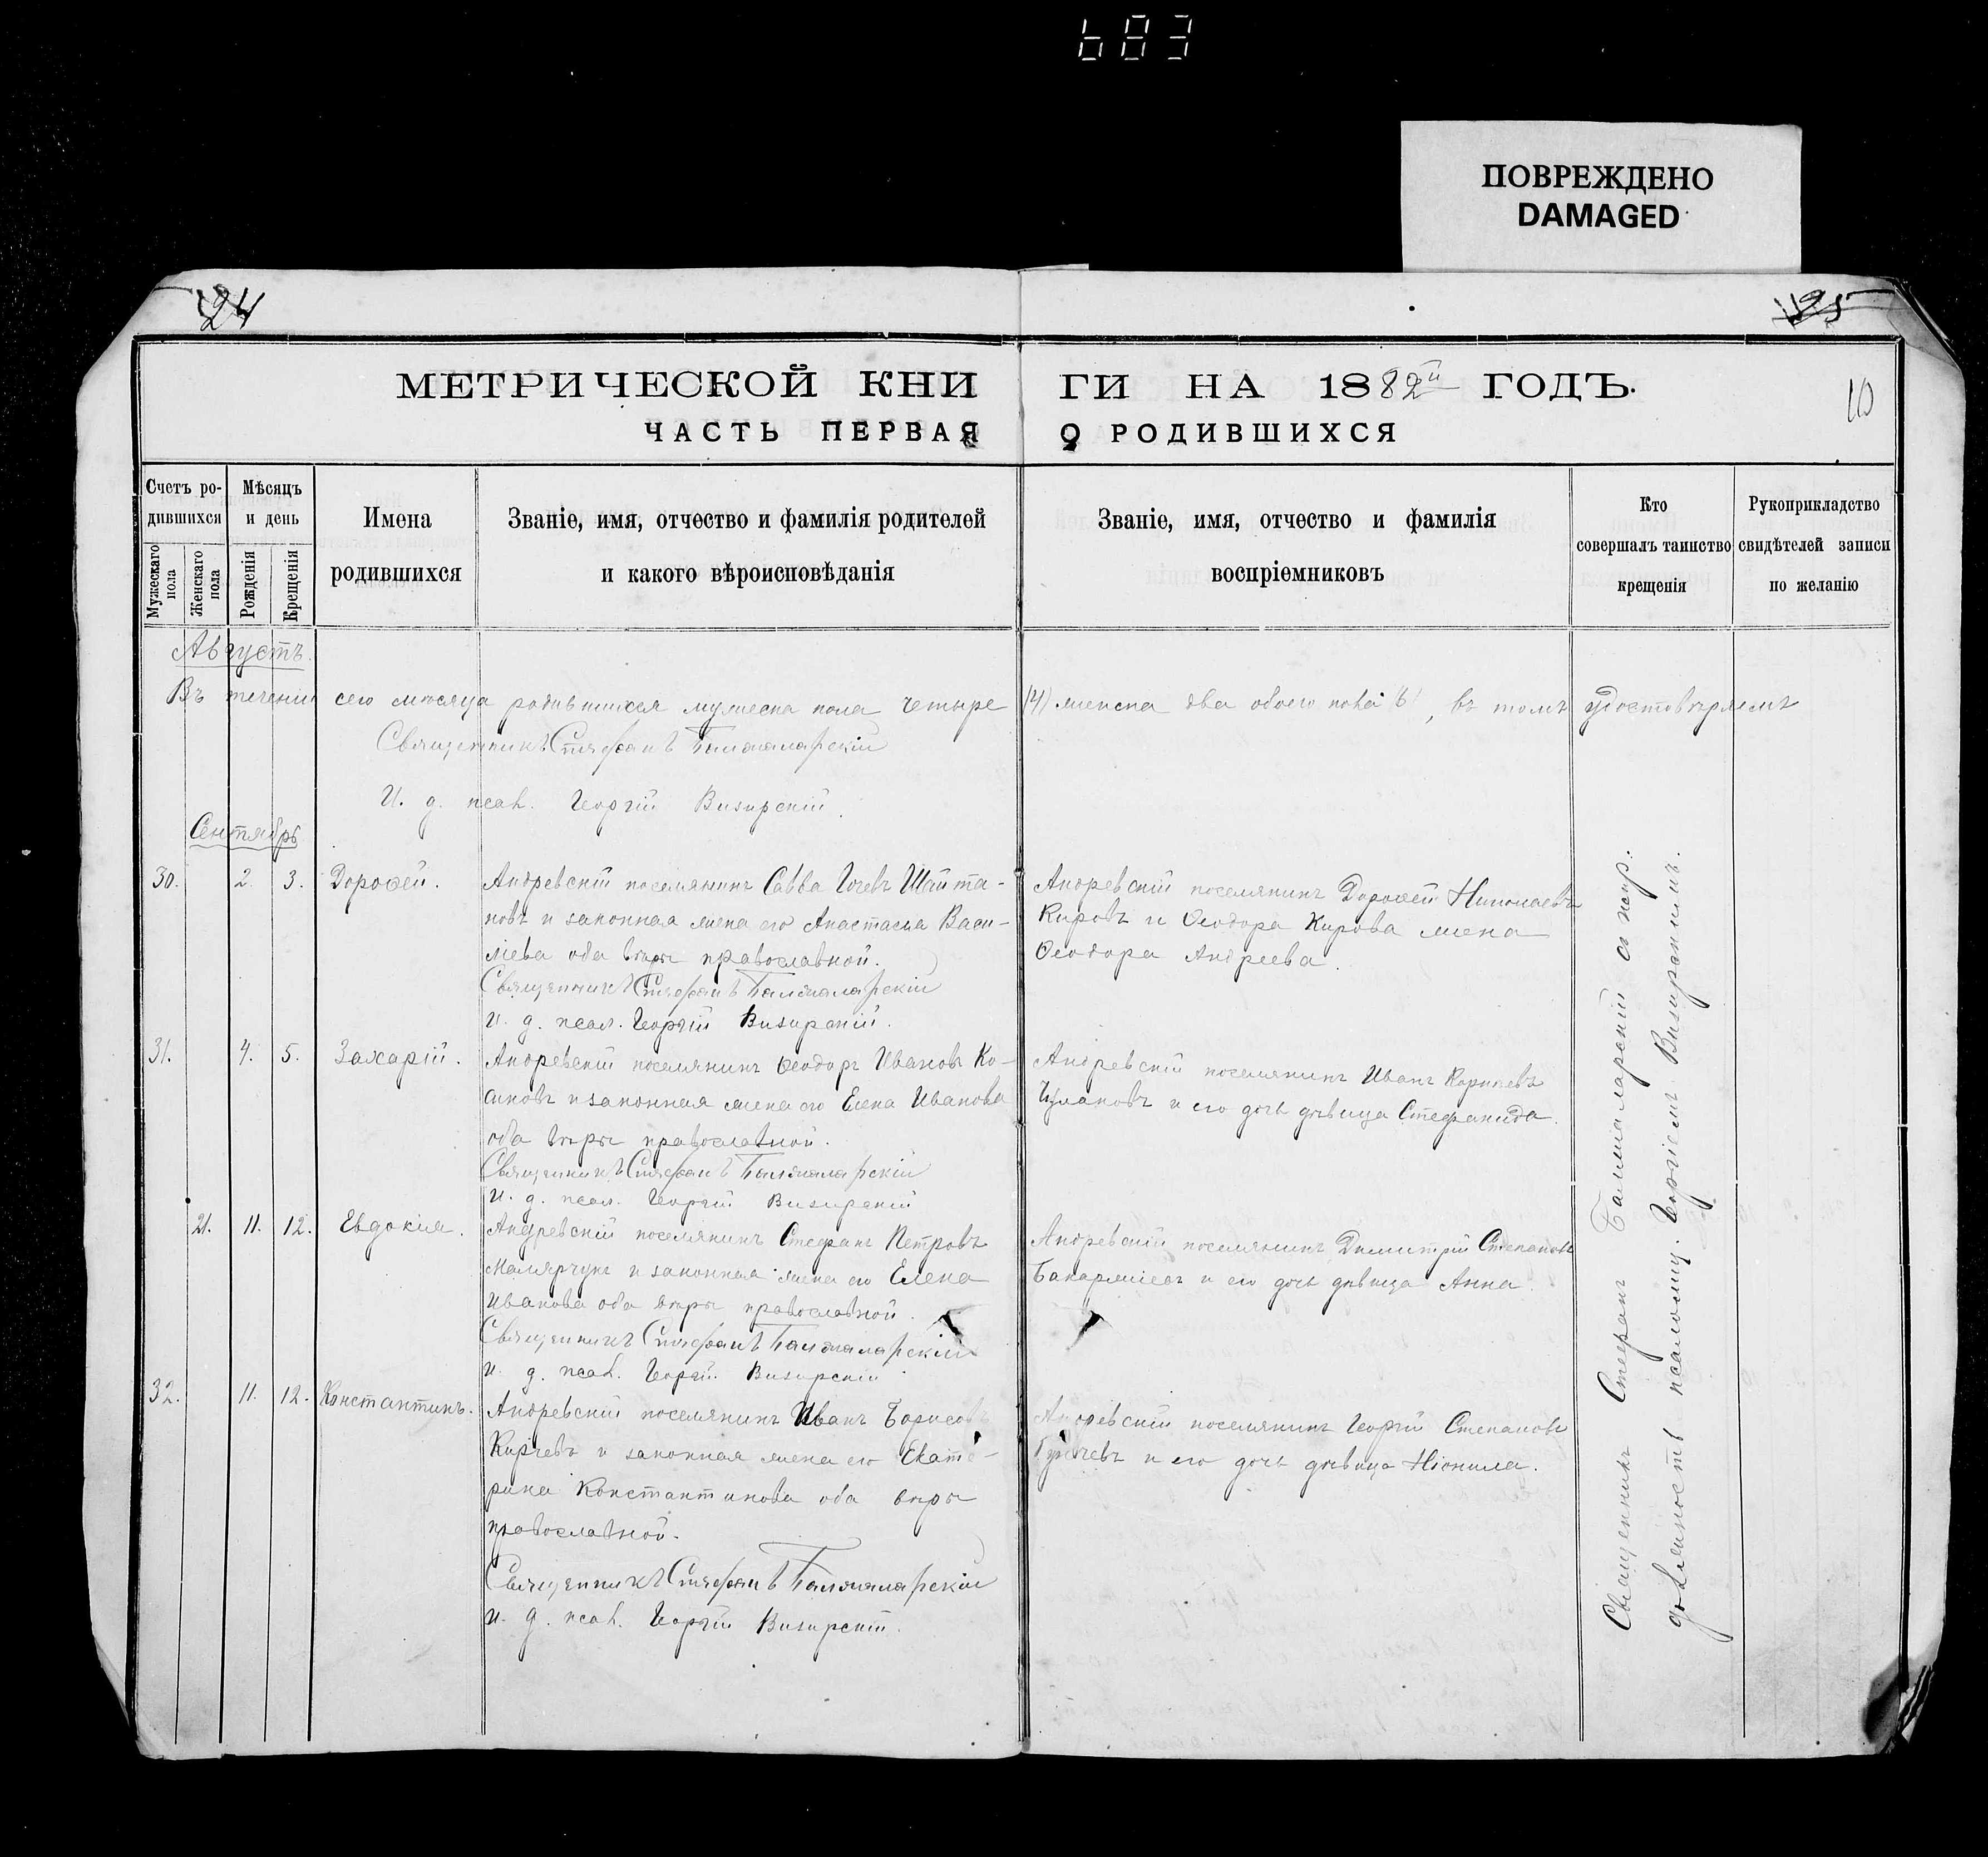 683
ПОВРЕЖДЕНО
DAMAGED
24
25
МЕТРИЧЕСКОЙ КНИГИ НА 1882й ГОДЪ.
10
ЧАСТЬ ПЕРВАЯ О РОДИВШИХСЯ
Счетъ родившихся
Мужескаго пола
Женскаго пола
Мѣсяцъ и день
Рожденія
Крещенія
Имена родившихся
Званіе, имя, отчество и фамилія родителей
и какого вѣроисповѣданія
Званіе, имя, отчество и фамилія
воспріемниковъ
Кто
совершалъ таинство
крещенія
Рукоприкладство
свидѣтелей записи
по желанію
Августъ.
Въ теченіи сего мѣсяца родившихся мужеска пола четыре (4) женска два обоего пола 6, въ томъ удостовѣряемъ
Священникъ Стефанъ
И. д. псал. Георгій Визирскій.
Сентябрь
30. 2. 3. Дорофей.
Андревскій поселянинъ Савва Шайта-
новъ и законная жена его Анастасія Васи-
ліева оба вѣры православной.
Священникъ Стефанъ
И. д. псал. Георгій Визирскій.
Андревскій поселянинъ Дорофей Николаевъ
Кировъ и Ѳеодора Кирова жена
Ѳеодора Андреева.
31. 4. 5. Захарій.
Андревскій поселянинъ Ѳеодоръ Ивановъ Ко-
синовъ и законная жена его Елена Иванова
оба вѣры православной.
Священникъ Стефанъ
И. д. псал. Георгій Визирскій
Андревскій поселянинъ Иванъ
и его дочь дѣвица Стефанида.
21. 11. 12. Евдокія.
Андревскій поселянинъ Стефанъ Петровъ
Малярчукъ и законная жена его Елена
Иванова оба вѣры православной.
Священникъ Стефанъ
И. д. псал. Георгій Визирскій
Андревскій поселянинъ Димитрій Степановъ
и его дочь дѣвица Анна.
32. 11. 12. Константинъ.
Андревскій поселянинъ Иванъ Борисовъ
Кирчевъ и законная жена его Екате-
рина Константинова оба вѣры
православной.
Священникъ Стефанъ
И. д. псал. Георгій Визирскій.
Андревскій поселянинъ Георгій Степановъ
и его дочь дѣвица Неонила.
Священникъ Стефанъ съ испр.
должность псаломщ. Георгіемъ Визирскимъ.